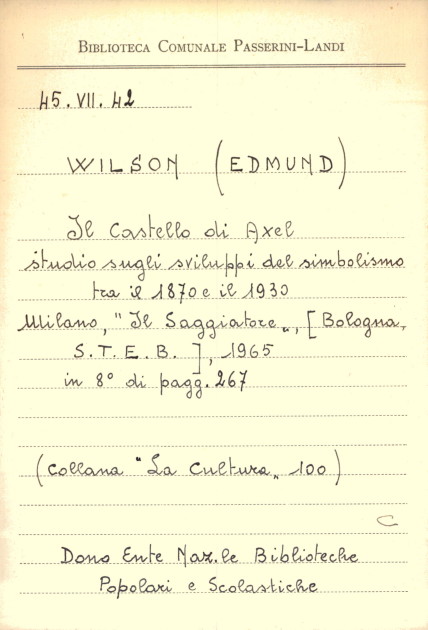 BIBLIOTECA COMUNALE PASSERINI-LANDI
45.VII.42
WILSON (EDMUND)
Il Castello di Axel
studio sugli sviluppi del simbolismo
tra il 1870 e il 1930
Milano, "Il Saggiatore„, [Bologna,
S.T.E.B.], 1965
in 8° di pagg. 267
(Collana "La Cultura„ 100)
C
Dono Ente Naz.le Biblioteche
Popolari e Scolastiche